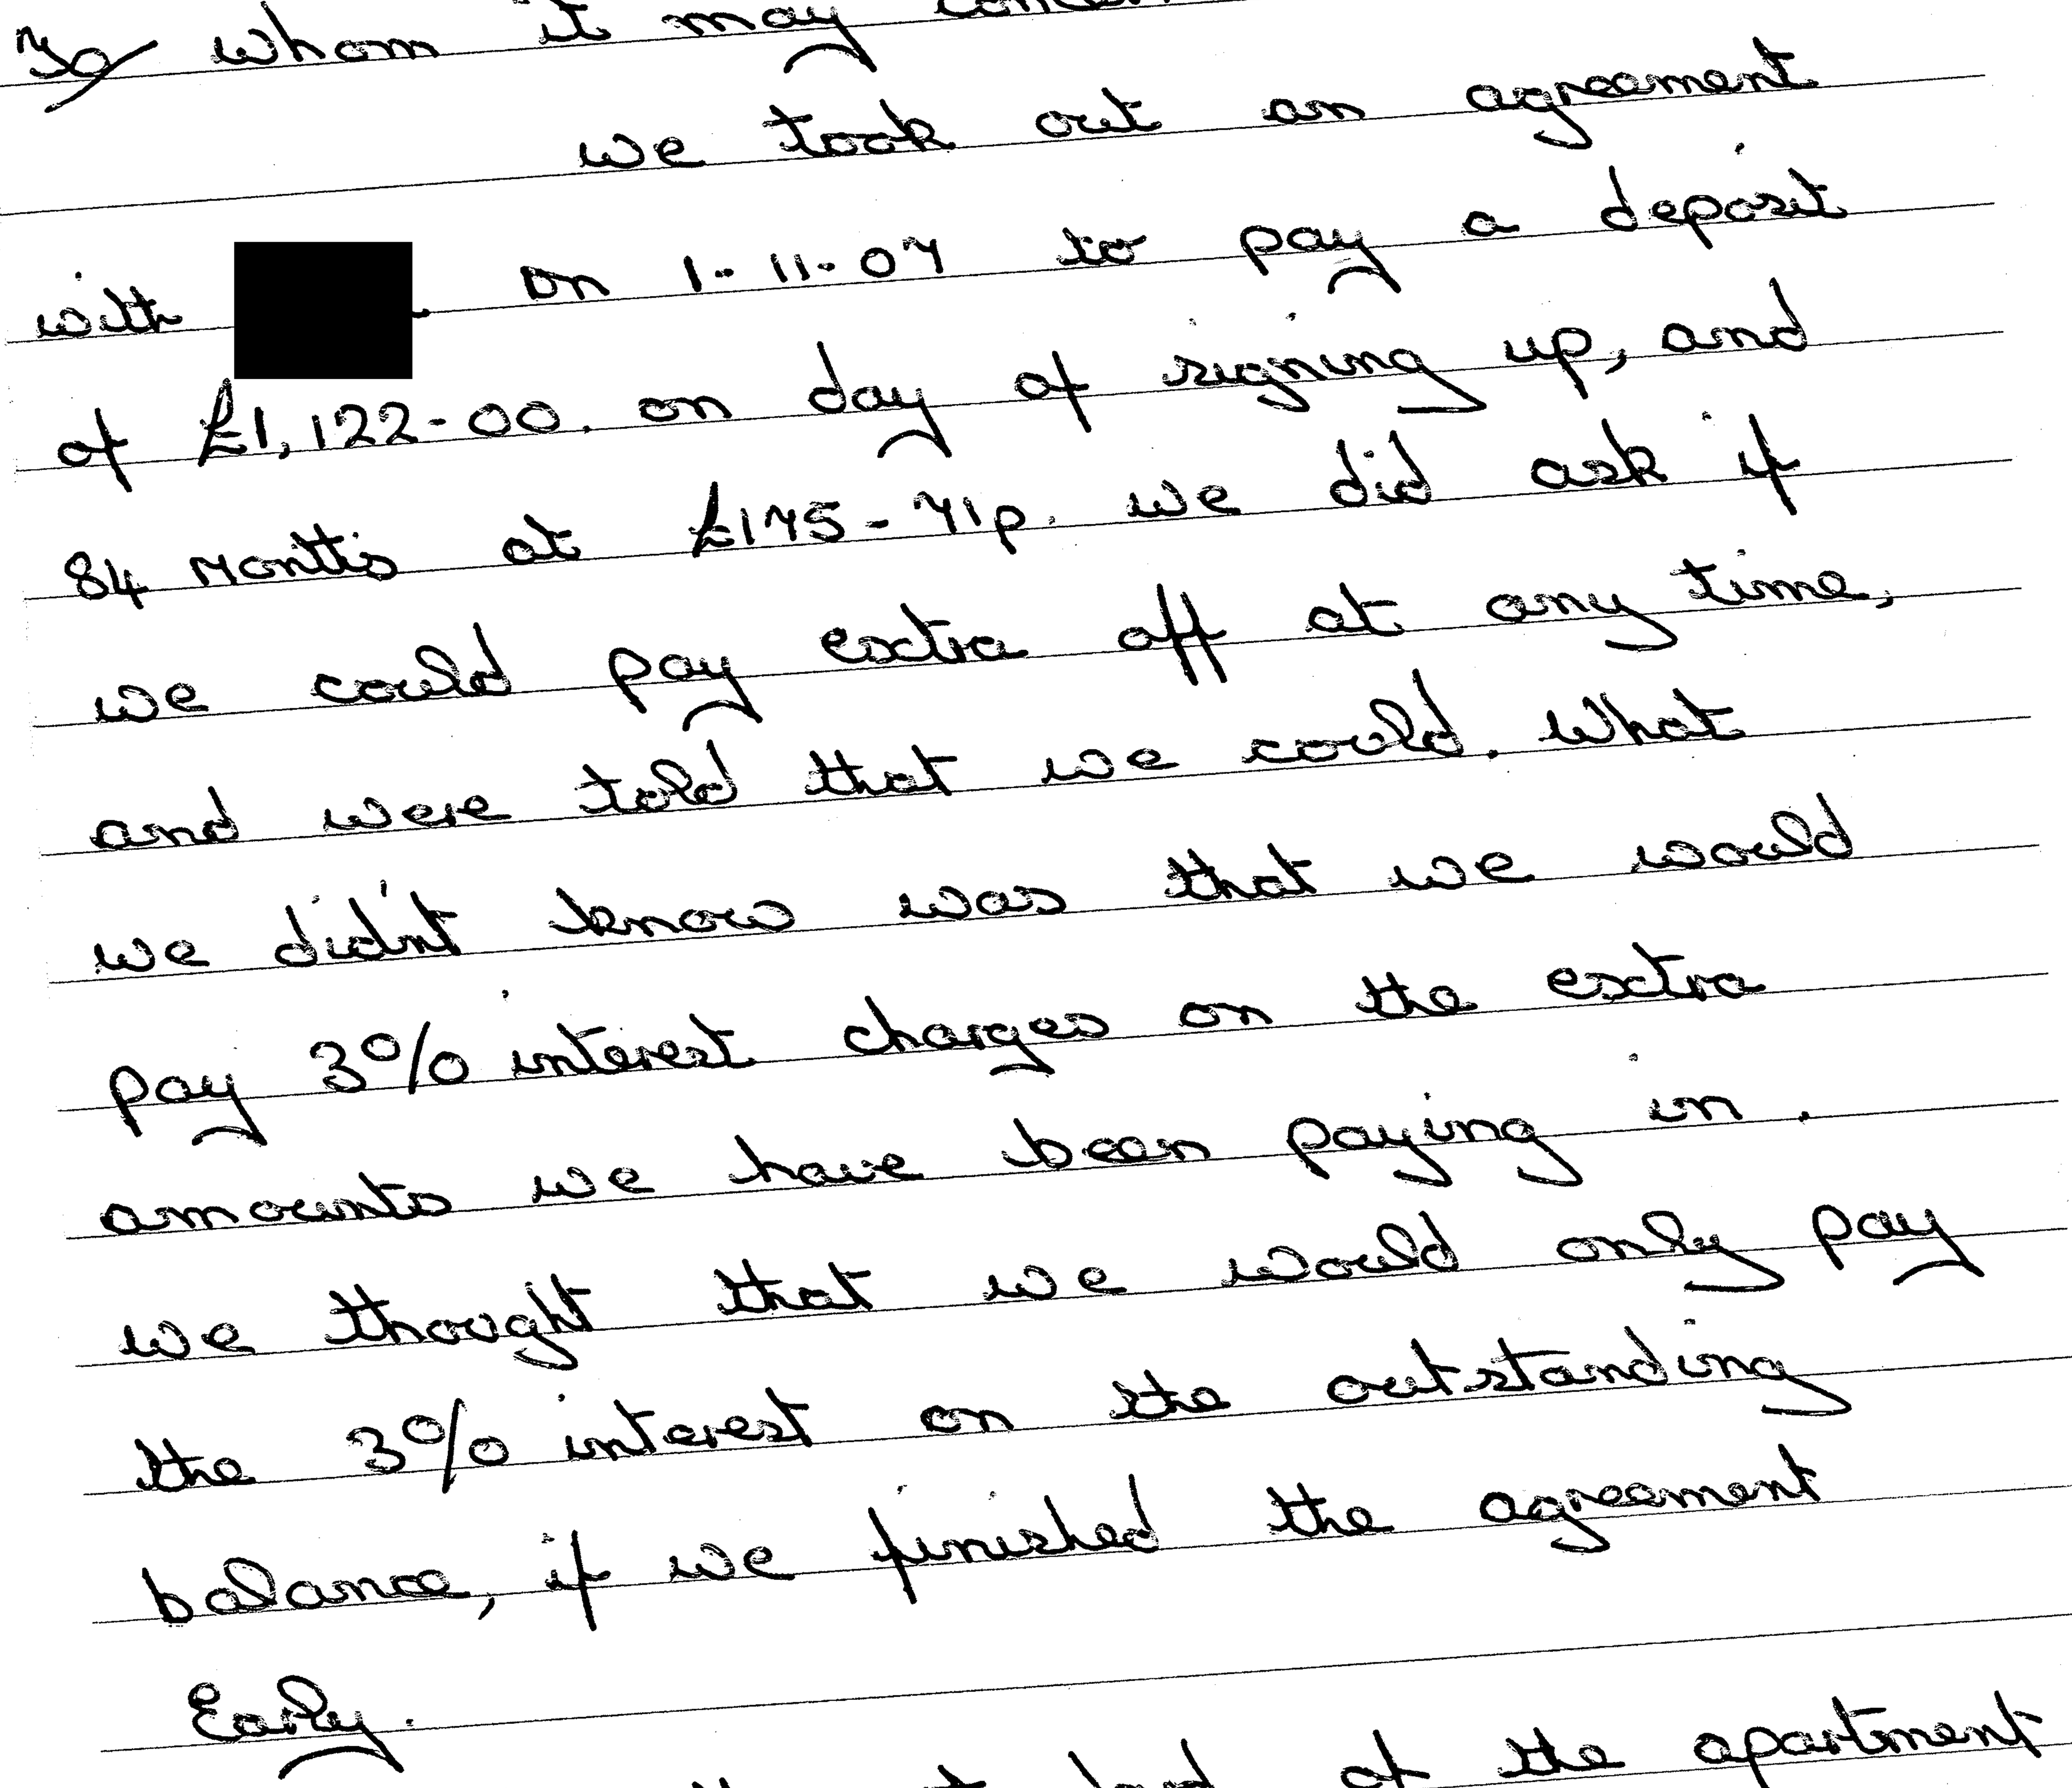 To whom it may
we took out an agreement
with on 1-11-07 to pay a deposit
of £1,122-00. on day of signing up, and
84 Months at £175-71p. we did ask if
we could pay extra off at any time,
and were told that we could. What
we didn't know was that we would
pay 3% interest charges on the extra
amounts we have been paying in.
we thought that we would only pay
the 3% interest on the outstanding
balance, if we finished the agreement
Early.
of the apartment